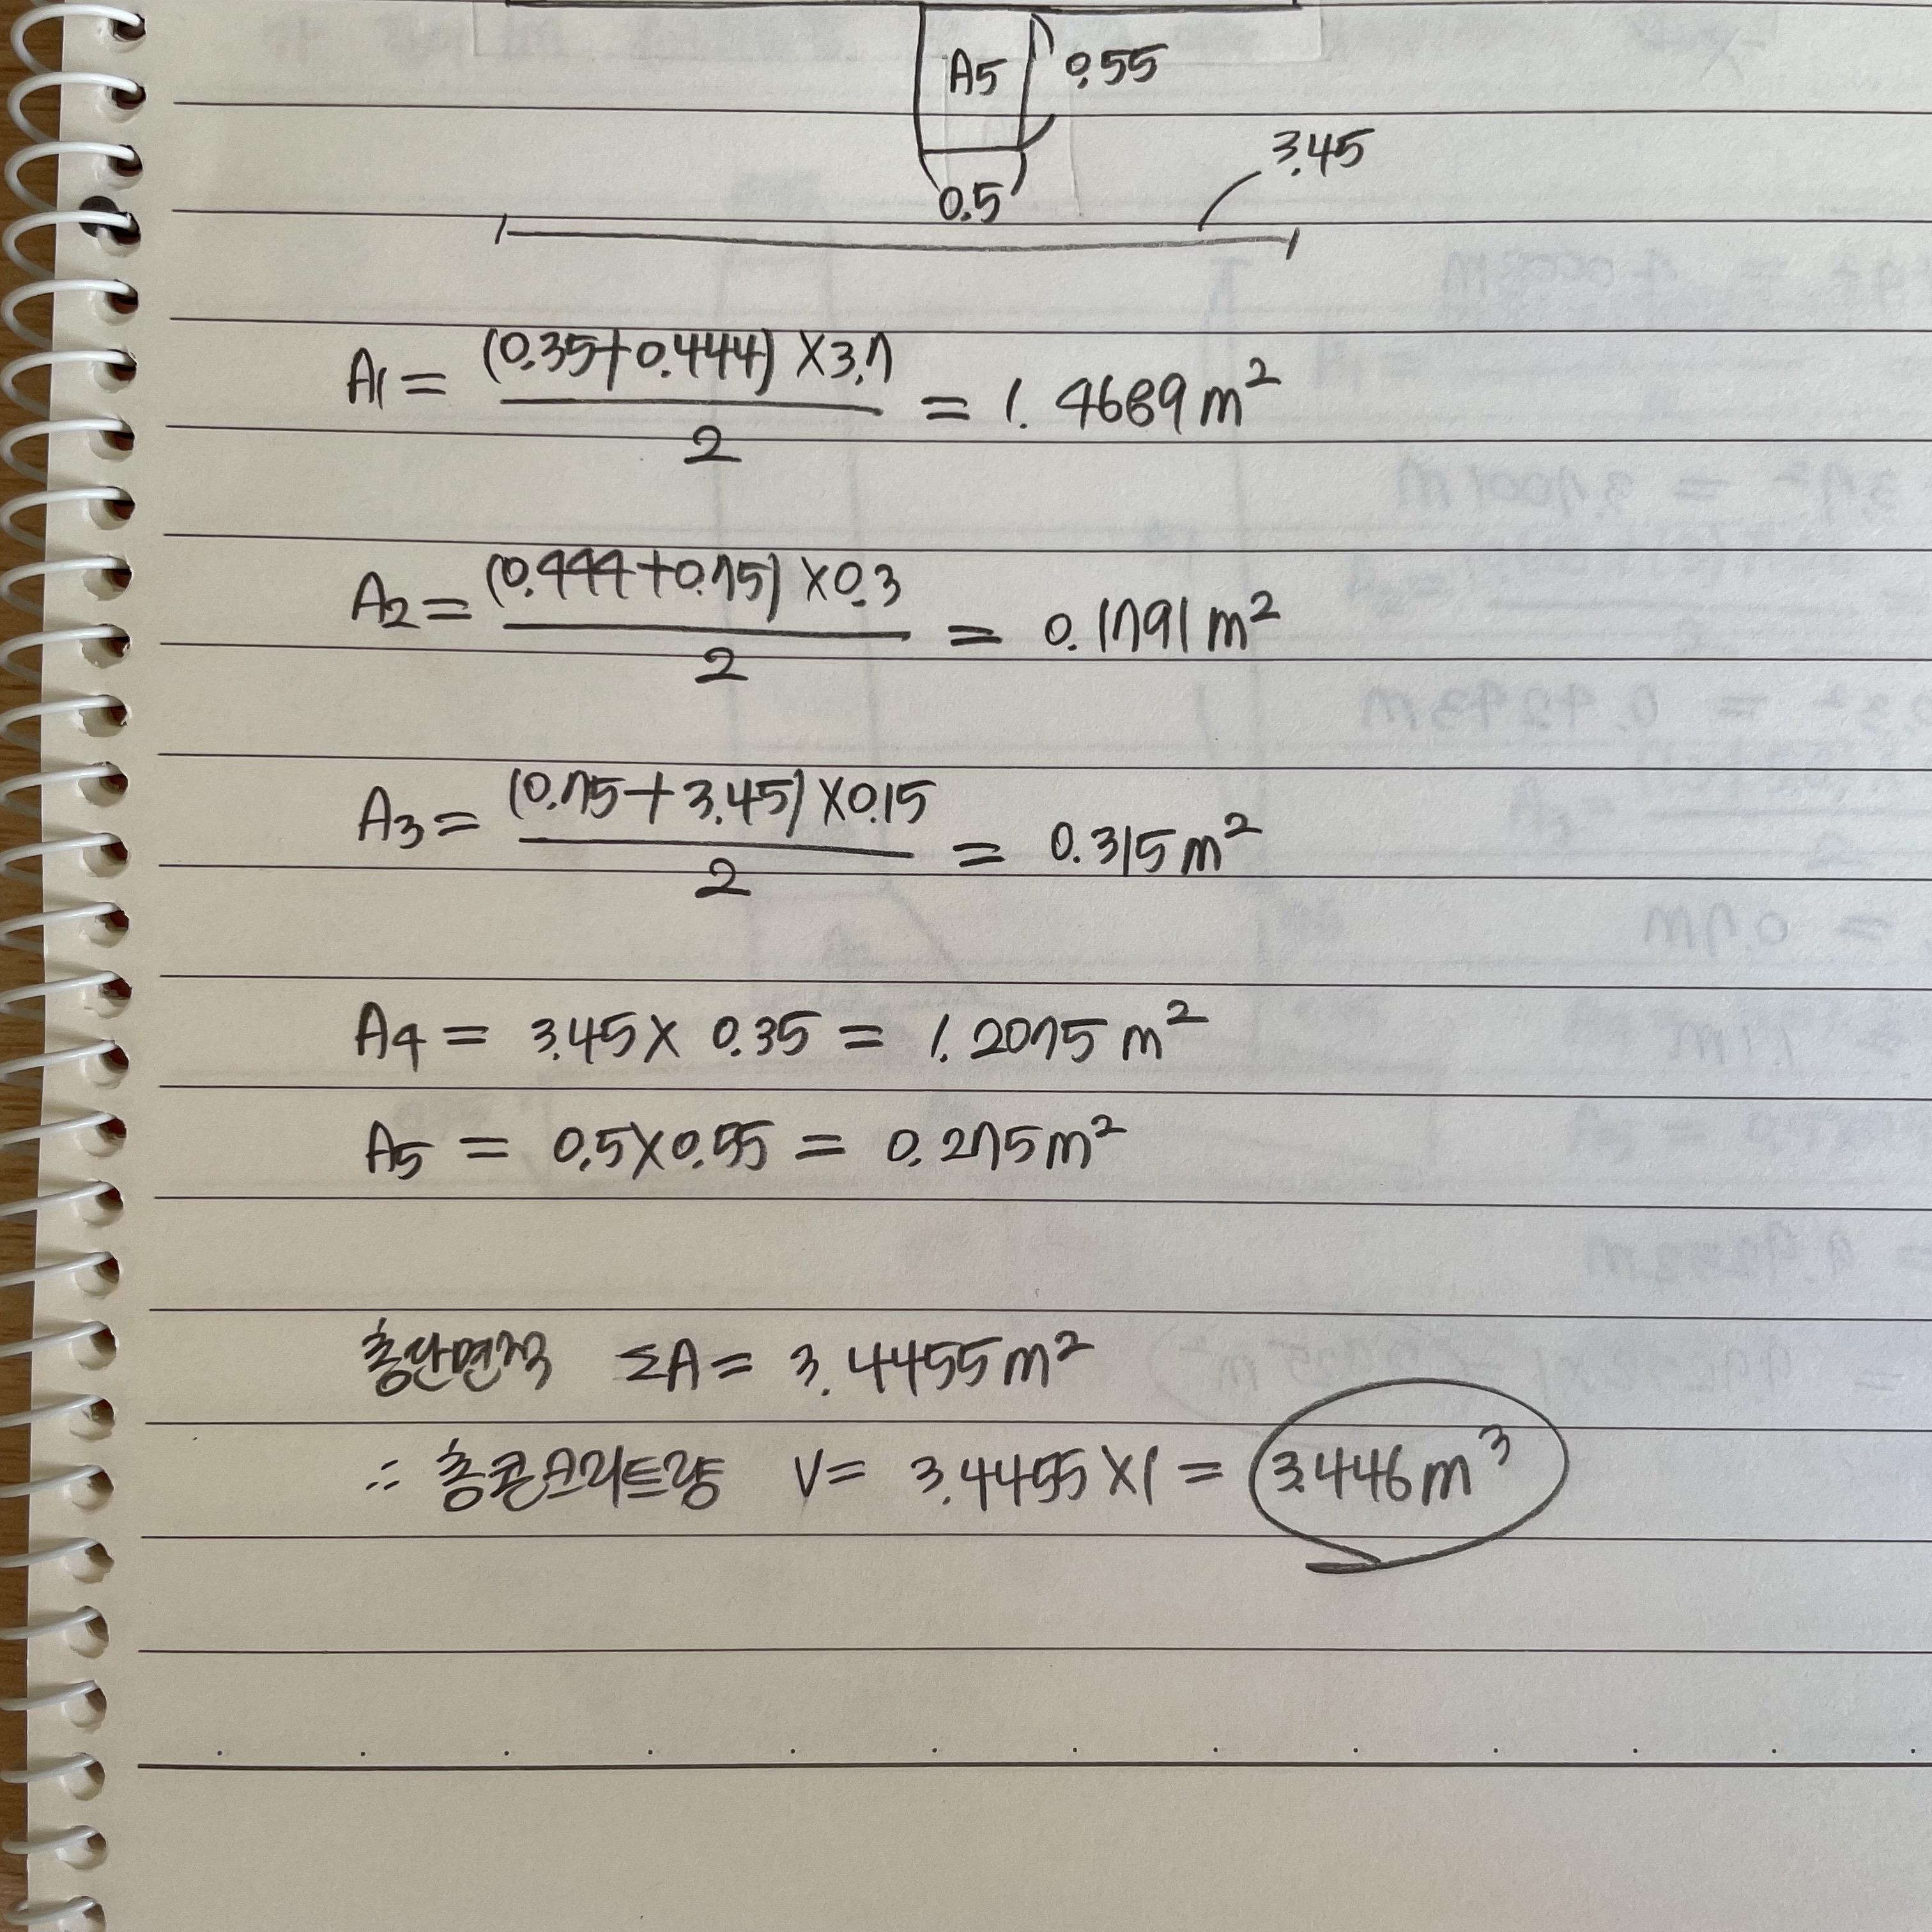 A5 0.55
3.45
0.5
A1 = (0.35+0.444) X3.7 / 2 = 1.4689 m²
A2 = (0.444+0.75) X0.3 / 2 = 0.1791 m²
A3 = (0.75+3.45) X0.15 / 2 = 0.315 m²
A4 = 3.45 X 0.35 = 1.2075 m²
A5 = 0.5X0.55 = 0.275 m²
총단면적 ΣA = 3.4455 m²
∴ 총콘크리트량 V = 3.4455 X1 = 3.446 m³